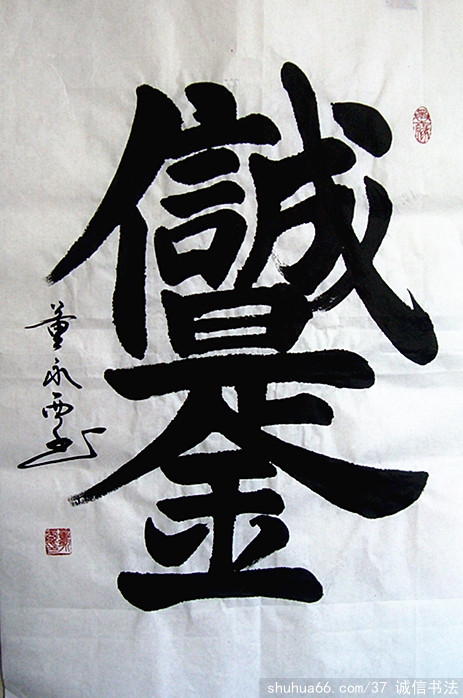 誠信是金
董永西
shuhua66.com/37 诚信书法